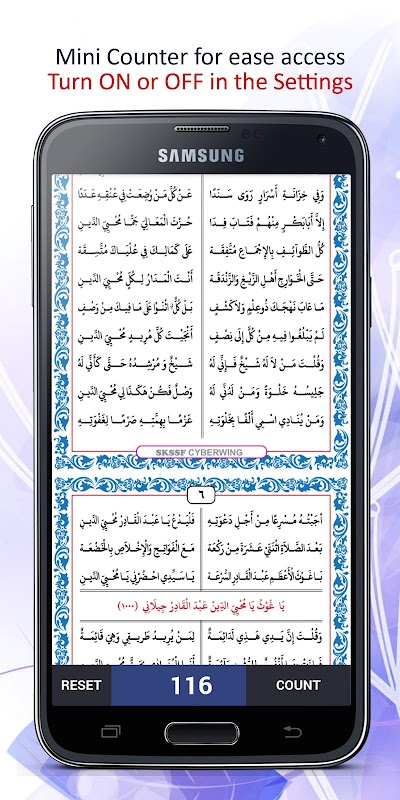 Mini Counter for ease access
Turn ON or OFF in the Settings
SAMSUNG
وَفِي خِزَانَةِ أَسْرَارٍ رَوَى سَنَدًا عَنْ كُلِّ مَنْ وُضِعَتْ فِي عُنْقِهِ عَدَدًا
إِلاَّ أَبَابَكْرٍ مِنْهُمْ فَتَابَ فَدَا حُزْتَ الْمَعَالِيَ جَمًّا مُحْيِيَ الدِّينِ
كُلُّ الطَّوَآئِفِ بِالْإِجْمَاعِ مُتَّفِقَهْ عَلَى كَمَالِكَ فِي عُلْيَاكَ مُتَّسِقَهْ
حَتَّى الْخَوَارِجِ أَهْلِ الزَّيْغِ وَالزَّنْدَقَهْ أَنْتَ الْمَدَارُ لِكُلٍّ مُحْيِيَ الدِّينِ
مَا عَابَ نَهْجَكَ ذُوعِلْمٍ وَلاَكَشْفٍ بَلْ كُلٌّ اثْنَوْا عَلَى مَا فِيكَ مِنْ وَصْفٍ
لَمْ يَبْلُغُوا فِيهِ مِنْ كُلٍّ إِلَى نِصْفٍ أَنْجَيْتَ كُلَّ مُرِيدٍ مُحْيِيَ الدِّينِ
وَقُلْتَ مَنْ لاَ لَهُ شَيْخٌ فَإِنِّي لَهُ شَيْخٌ وَ مُرْشِدُهُ حَتَّى كَأَنِّي لَهُ
جَلِيسُهُ خَلْوَةً وَمَنْ لَدُنِّي لَهُ وَصْلٌ فَكُنْ هَكَذَا لِي مُحْيِيَ الدِّينِ
وَمَنْ يُنَادِي اسْمِي أَلْفًا بِخَلْوَتِهِ عَزْمًا بِهِمَّتِهِ صَرْمًا لِغَفْوَتِهِ
SKSSF CYBERWING
٦
أَجَبْتُهُ مُسْرِعًا مِنْ أَجْلِ دَعْوَتِهِ فَلْيَدْعُ يَا عَبْدَ الْقَادِرْ مُحْيِيَ الدِّينِ
بَعْدَ الصَّلاَةِ اثْنَتَيْ عَشْرَةَ مِنْ رَكْعَهْ مَعَ الْفَوَاتِحِ وَالْإِخْلاَصِ بِالْخَضْعَهْ
يَا غَوْثُ الْأَعْظَمْ عَبْدَ الْقَادِرِ السُّرْعَهْ يَا سَيِّدِي احْضُرْنِي يَا مُحْيِيَ الدِّينِ
يَا غَوْثُ يَا مُحْيِيَ الدِّينِ عَبْدَ الْقَادِرِ جِيلَانِي (١٠٠٠)
وَقُلْتَ إِنَّ يَدِي هَذِي لَدَائِمَةٌ لِمَنْ يُرِيدُ طَرِيقَتِي وَهِيَ قَائِمَةٌ
RESET 116 COUNT